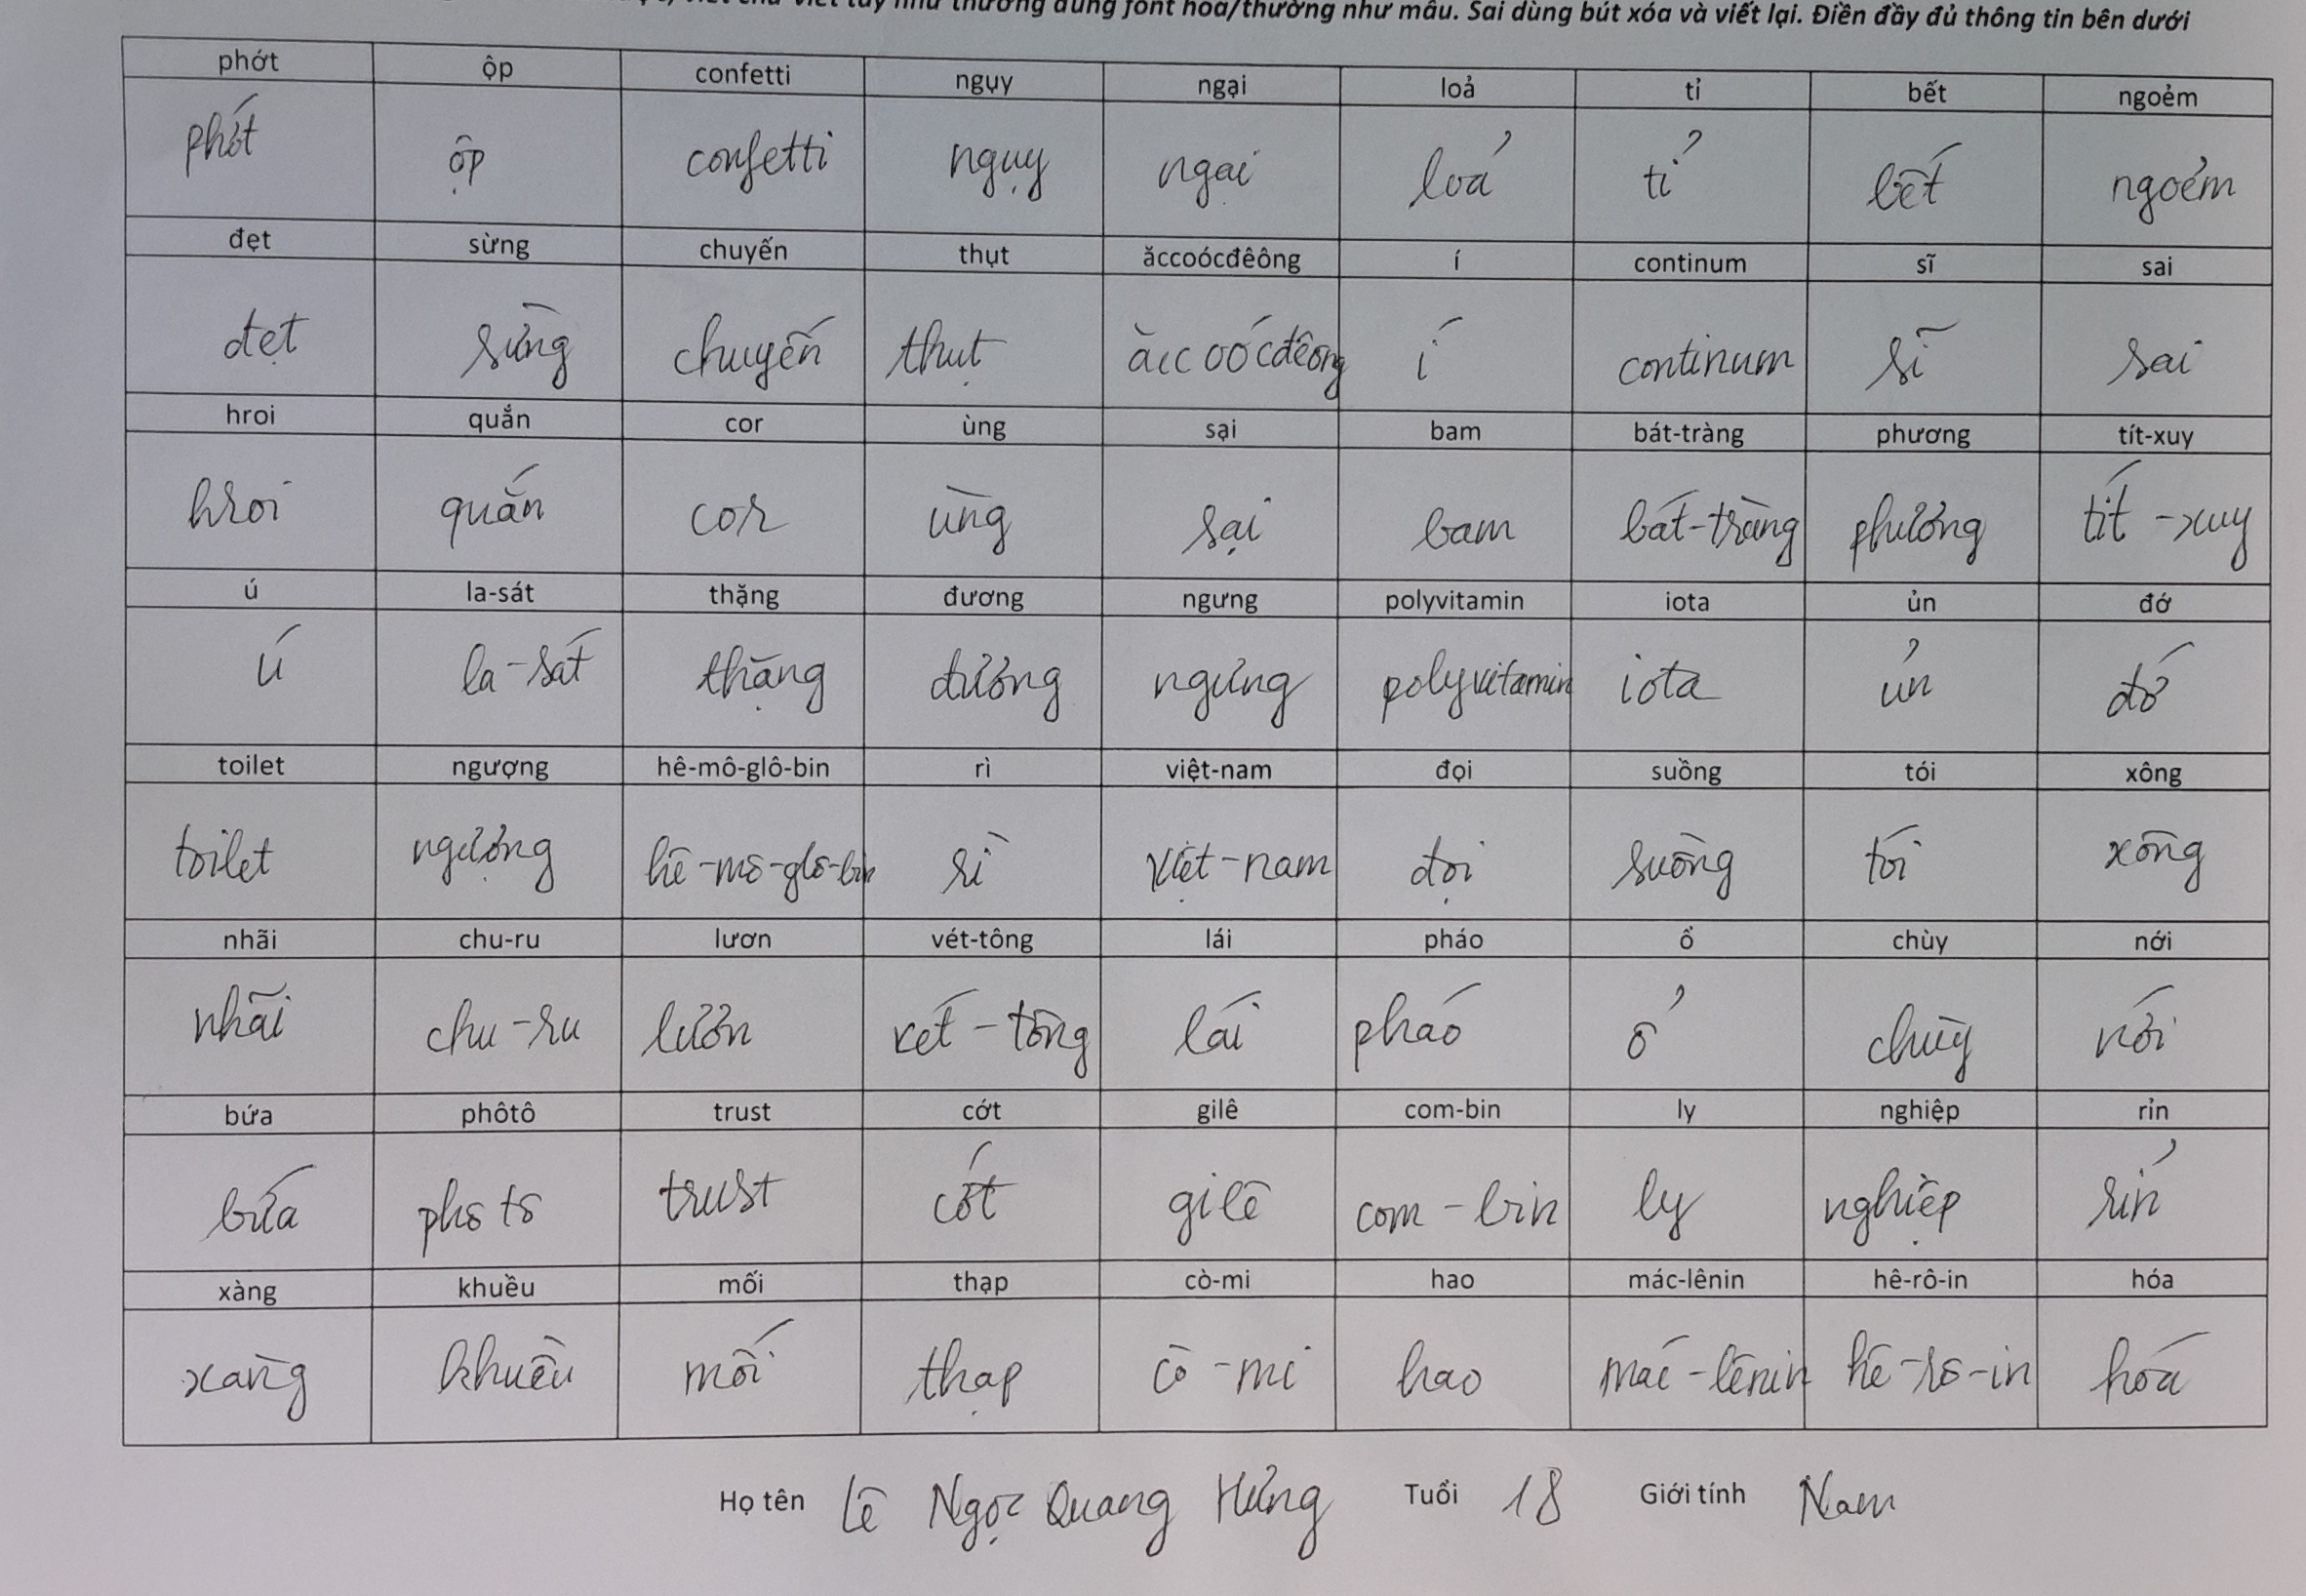 viết chữ viết tay như thường dùng font hoa/thường như mẫu. Sai dùng bút xóa và viết lại. Điền đầy đủ thông tin bên dưới
phớt ộp confetti ngụy ngại loả tỉ bết ngoẻm
phớt ộp confetti ngụy ngại loả tỉ bết ngoẻm
đẹt sừng chuyến thụt ăccoócđêông í continum sĩ sai
đẹt sừng chuyến thụt ăccoócđêông í continum sĩ sai
hroi quắn cor ùng sại bam bát-tràng phương tít-xuy
hroi quắn cor ùng sại bam bát-tràng phương tít-xuy
ú la-sát thặng đương ngưng polyvitamin iota ủn đớ
ú la-sát thặng đương ngưng polyvitamin iota ủn đớ
toilet ngượng hê-mô-glô-bin rì việt-nam đọi suồng tói xông
toilet ngượng hê-mô-glô-bin rì việt-nam đọi suồng tói xông
nhãi chu-ru lươn vét-tông lái pháo ổ chùy nới
nhãi chu-ru lươn vét-tông lái pháo ổ chùy nới
bứa phôtô trust cớt gilê com-bin ly nghiệp rỉn
bứa phôtô trust cớt gilê com-bin ly nghiệp rỉn
xàng khuều mối thạp cò-mi hao mác-lênin hê-rô-in hóa
xàng khuều mối thạp cò-mi hao mác-lênin hê-rô-in hóa
Họ tên Lê Ngọc Quang Hưng Tuổi 18 Giới tính Nam